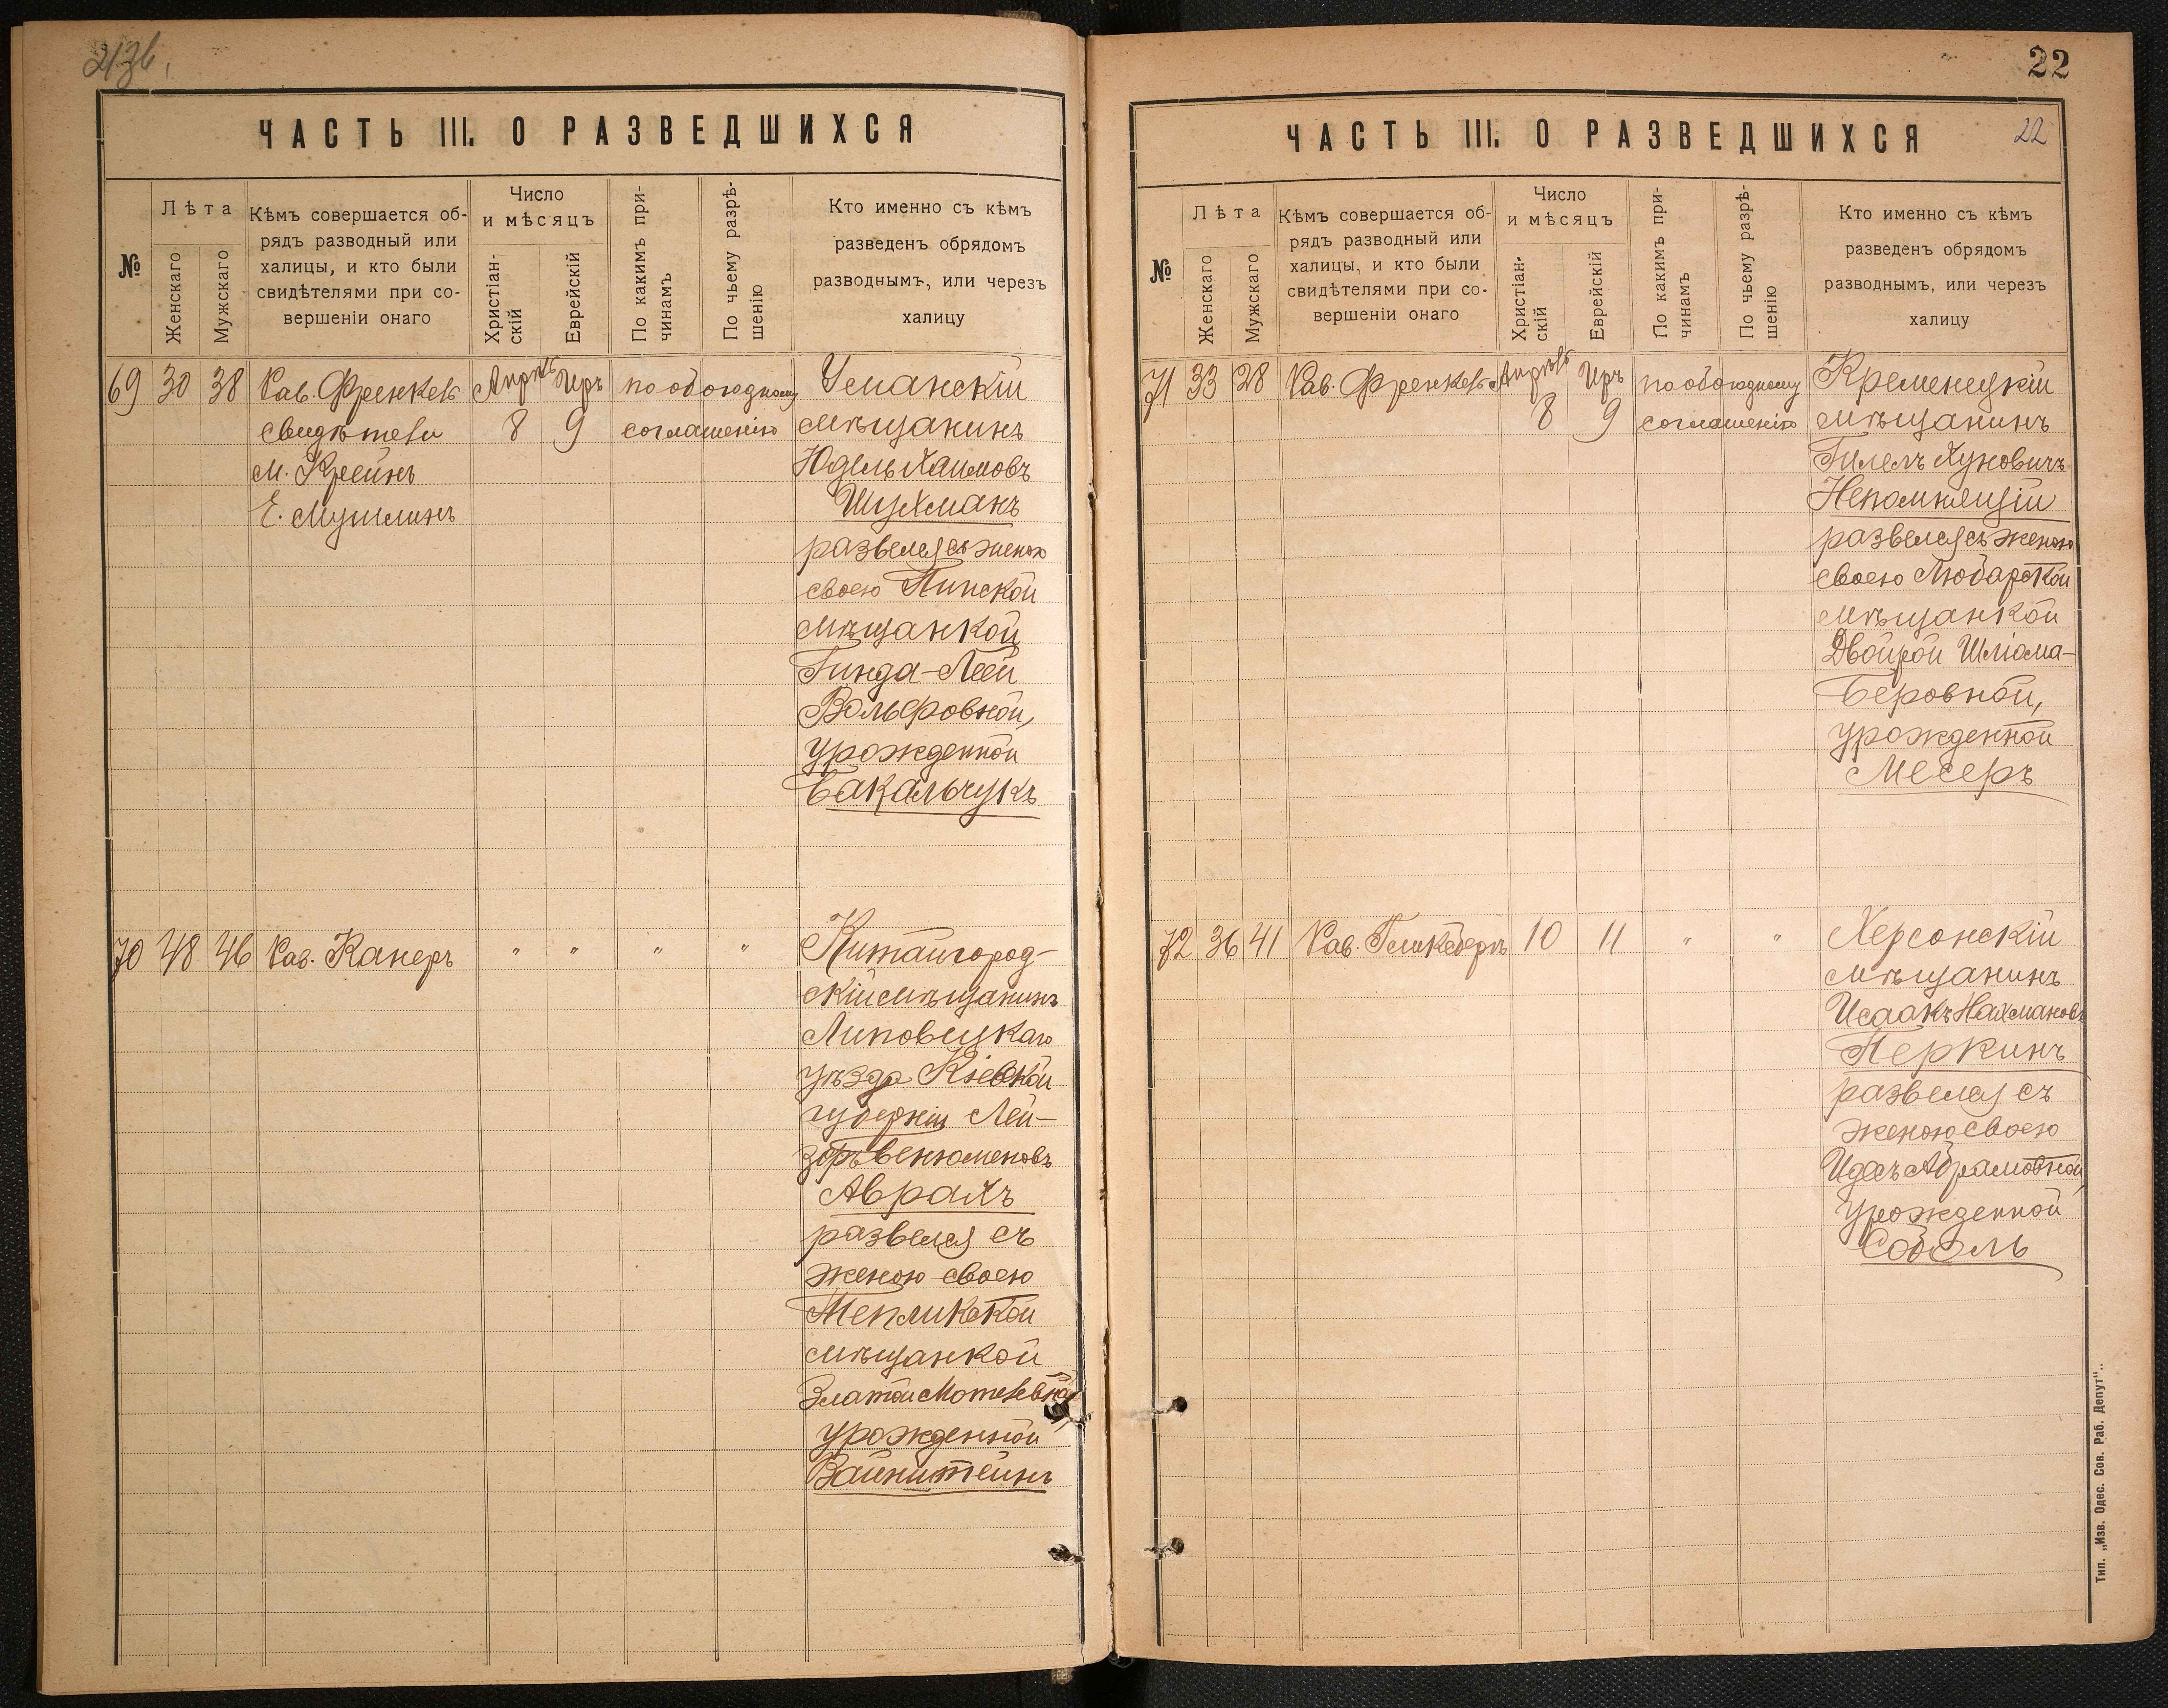 21зв.
ЧАСТЬ III. О РАЗВЕДШИХСЯ
№
Лѣта
Женскаго
Мужскаго
Кѣмъ совершается об-
рядъ разводный или
халицы, и кто были
свидѣтелями при со-
вершеніи онаго
Число
и мѣсяцъ
Христіан-
скій
Еврейскій
По какимъ при-
чинамъ
По чьему разрѣ-
шенію
Кто именно съ кѣмъ
разведенъ обрядомъ
разводнымъ, или черезъ
халицу
69 30 38 Рав. Френкель Апрѣль Иръ по обоюдному Уманскій
свидѣтели 8 9 соглашенію мѣщанинъ
М. Крейнъ Юдель Хаимовъ
Е. Мушлинъ Шухманъ
развелся съ женою
своею Пинской
мѣщанкой
Гинда-Леей
Вольфовной,
урожденной
Бакальчукъ
70 48 46 Рав. Канеръ " " " " Китайгород-
скій мѣщанинъ
Липовецкаго
уѣзда Кіевской
губерніи Лей-
зоръ Бенюменовъ
Аврахъ
развелся съ
женою своею
Тепликской
мѣщанкой
Златой Мотелевной,
урожденной
Вайнштейнъ
22
ЧАСТЬ III. О РАЗВЕДШИХСЯ 22
№
Лѣта
Женскаго
Мужскаго
Кѣмъ совершается об-
рядъ разводный или
халицы, и кто были
свидѣтелями при со-
вершеніи онаго
Число
и мѣсяцъ
Христіан-
скій
Еврейскій
По какимъ при-
чинамъ
По чьему разрѣ-
шенію
Кто именно съ кѣмъ
разведенъ обрядомъ
разводнымъ, или черезъ
халицу
71 33 28 Рав. Френкель Апрѣль Иръ по обоюдному Кременецкій
8 9 соглашенію мѣщанинъ
Гилелъ Хуновичъ
Непомнящій
развелся съ женою
своею Любарской
мѣщанкой
Двойрой Шліома-
Беровной,
урожденной
Месеръ
72 36 41 Рав. Гликбергъ 10 11 " " Херсонскій
мѣщанинъ
Исаакъ Нахмановъ
Перкинъ
развелся съ
женою своею
Идесъ Абрамовной,
урожденной
Соболь
Тип. „Изв. Одес. Сов. Раб. Депут“.